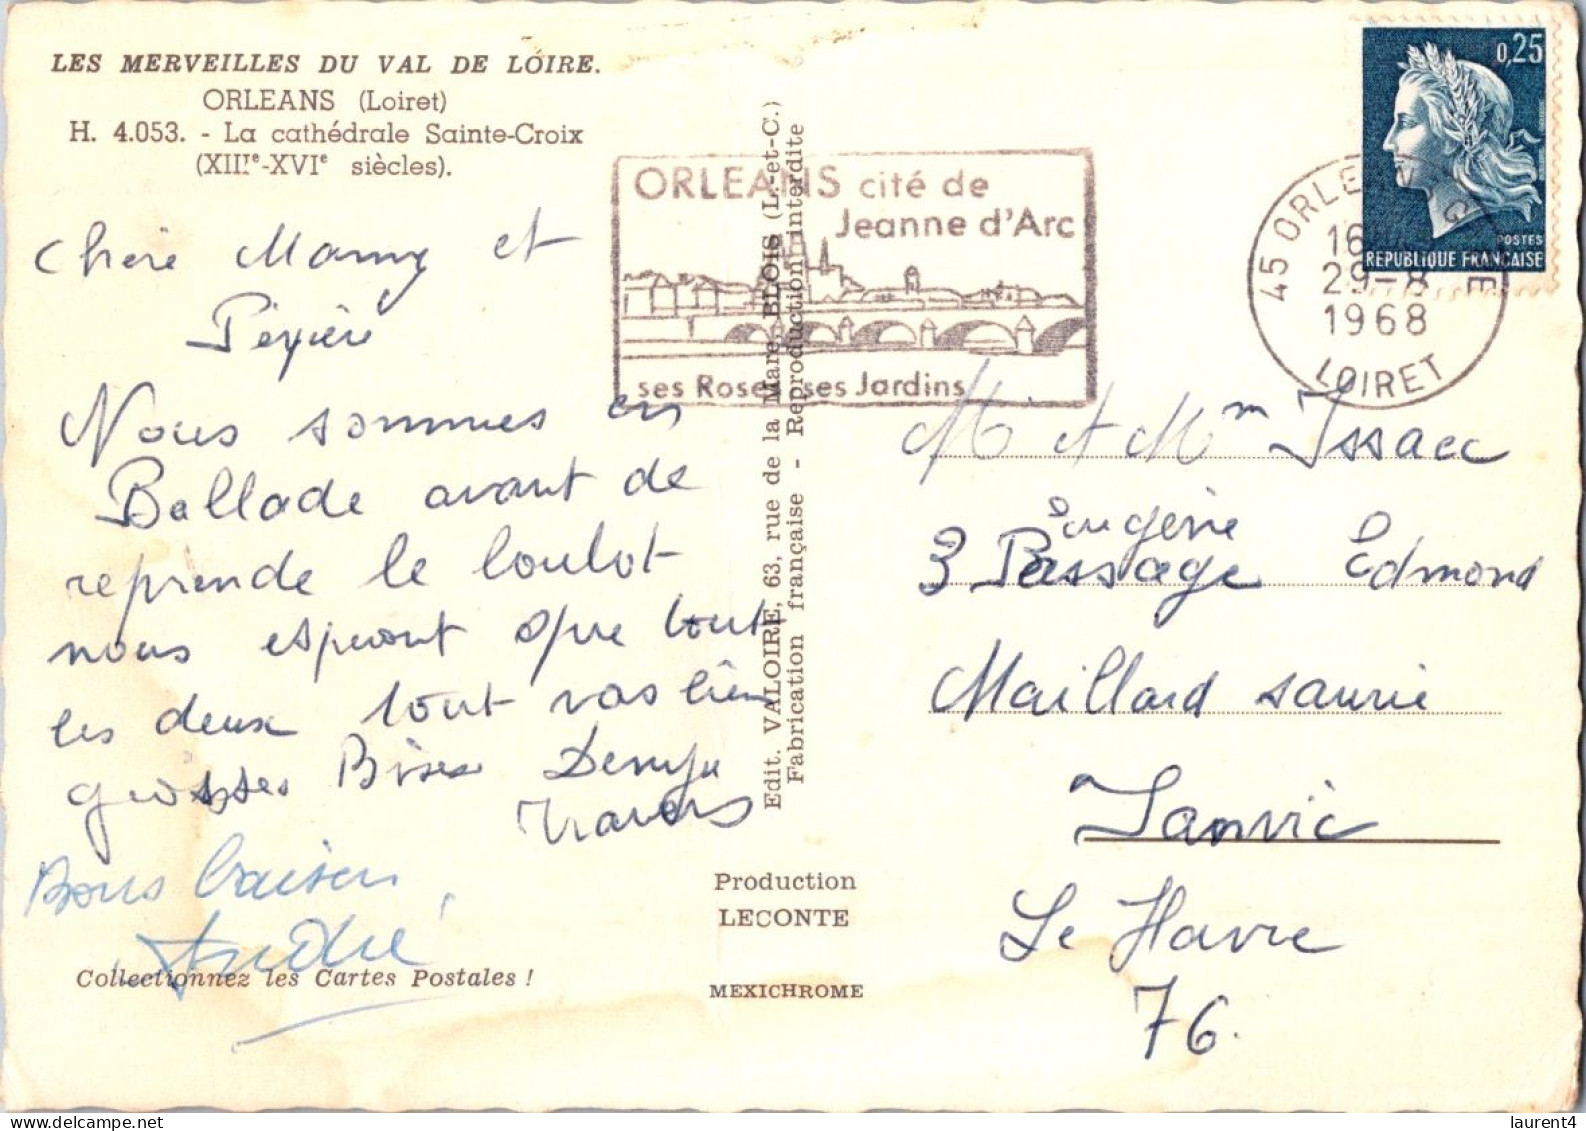 LES MERVEILLES DU VAL DE LOIRE.
ORLEANS (Loiret)
H. 4.053. - La cathédrale Sainte-Croix
(XIIIe-XVIe siècles).
Chère Mamy et
Nous sommes en
Ballade avant de
reprende le boulot
nous esperont que tout
les deux tout vas bien
grosses Bises
Bons baisers
André
Collectionnez les Cartes Postales !
Edit. VALOIRE, 63, rue de la Mare, BLOIS (L.-et-C.)
Fabrication française - Reproduction interdite
Production
LECONTE
MEXICHROME
ORLEANS cité de
Jeanne d'Arc
ses Roses ses Jardins
0,25
POSTES
REPUBLIQUE FRANÇAISE
45 ORLEANS
16
29-8
1968
LOIRET
Mr et Mm Issacc
Eugène
3 Passage Edmond
Maillard saurie
Sanvic
Le Havre
76.
laurent4